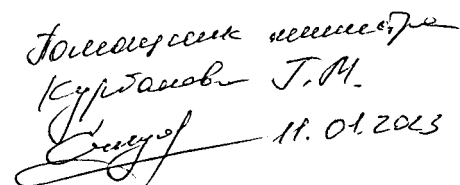 Помощник министра
Курбанова Г.М.
11.01.2023